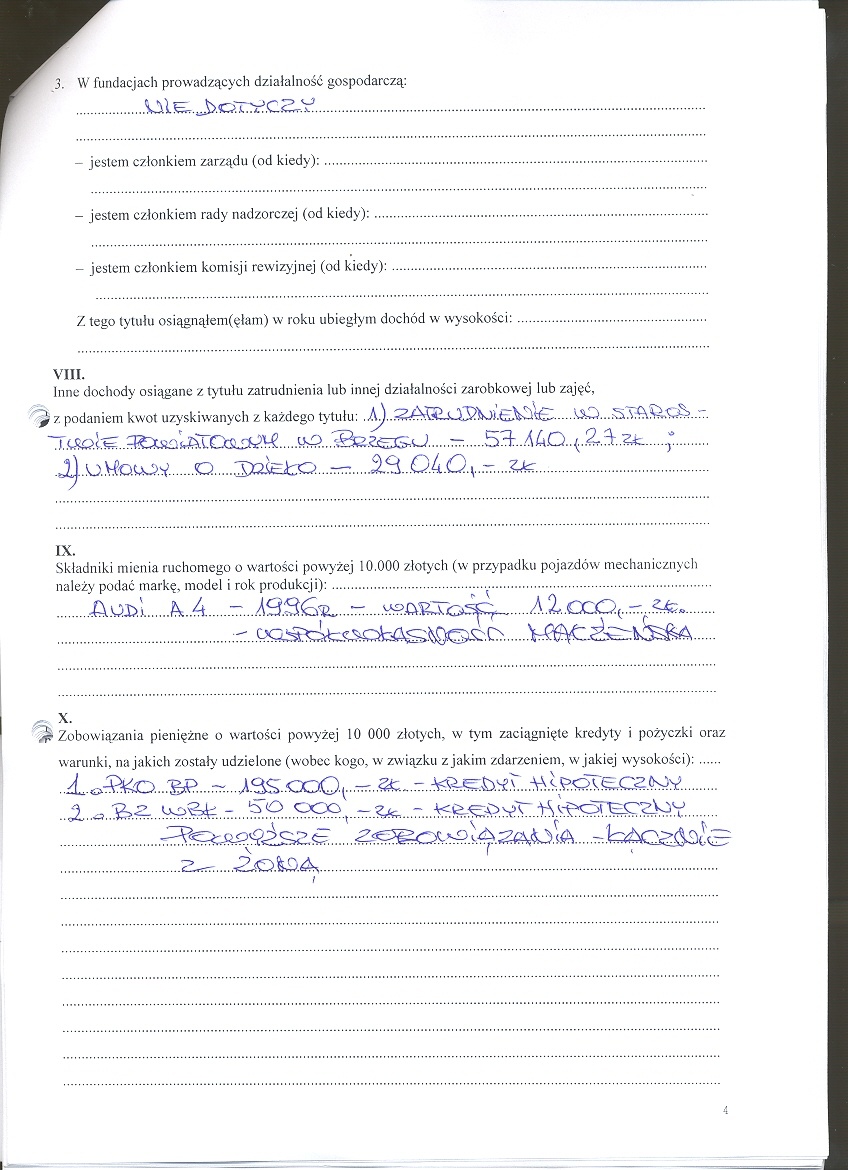 3. W fundacjach prowadzących działalność gospodarczą:
NIE DOTYCZY
– jestem członkiem zarządu (od kiedy):
– jestem członkiem rady nadzorczej (od kiedy):
– jestem członkiem komisji rewizyjnej (od kiedy):
Z tego tytułu osiągnąłem(ęłam) w roku ubiegłym dochód w wysokości:
VIII.
Inne dochody osiągane z tytułu zatrudnienia lub innej działalności zarobkowej lub zajęć,
z podaniem kwot uzyskiwanych z każdego tytułu: 1) ZATRUDNIENIE W STAROS-
TWIE POWIATOWYM W BRZEGU – 57.140,27 zł ;
2) UMOWY O DZIEŁO – 29.040,- zł
IX.
Składniki mienia ruchomego o wartości powyżej 10.000 złotych (w przypadku pojazdów mechanicznych
należy podać markę, model i rok produkcji):
AUDI A4 – 1996R – WARTOŚĆ 12.000,- zł.
– WSPÓŁWŁASNOŚĆ MAŁŻEŃSKA
X.
Zobowiązania pieniężne o wartości powyżej 10 000 złotych, w tym zaciągnięte kredyty i pożyczki oraz
warunki, na jakich zostały udzielone (wobec kogo, w związku z jakim zdarzeniem, w jakiej wysokości):
1. PKO BP – 195.000,- zł – KREDYT HIPOTECZNY
2. BZ WBK – 50 000,- zł – KREDYT HIPOTECZNY
POWYŻSZE ZOBOWIĄZANIA – ŁĄCZNIE
Z ŻONĄ
4